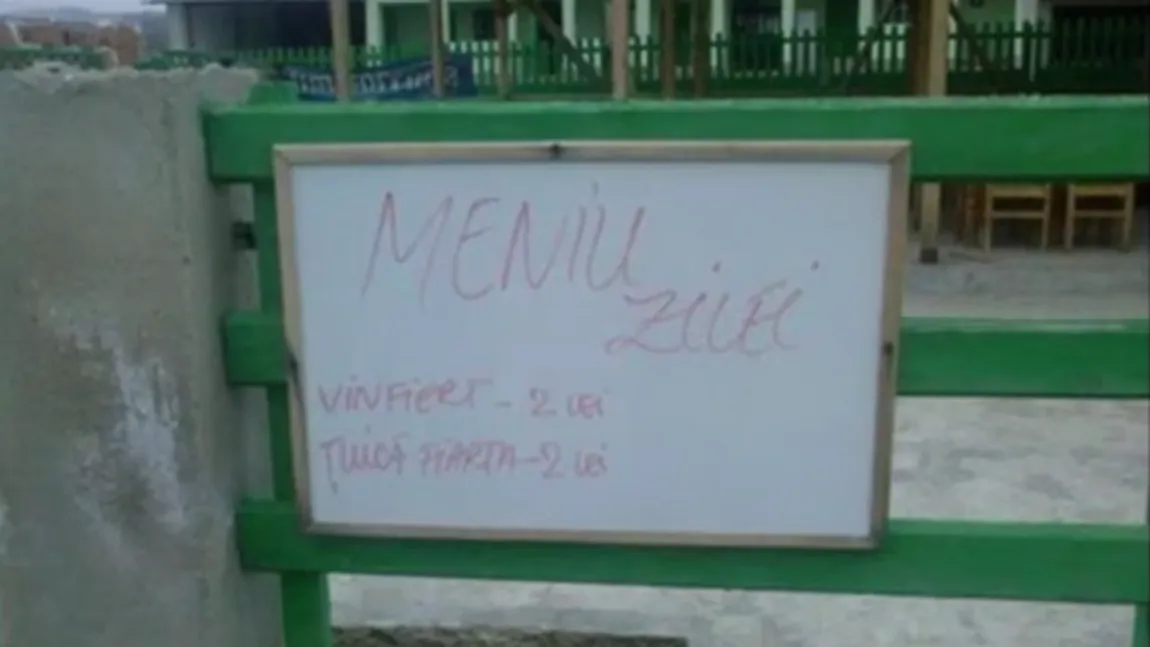 MENIU
ZILEI
VIN FIERT - 2 LEI
ȚUICĂ FIARTA - 2 LEI